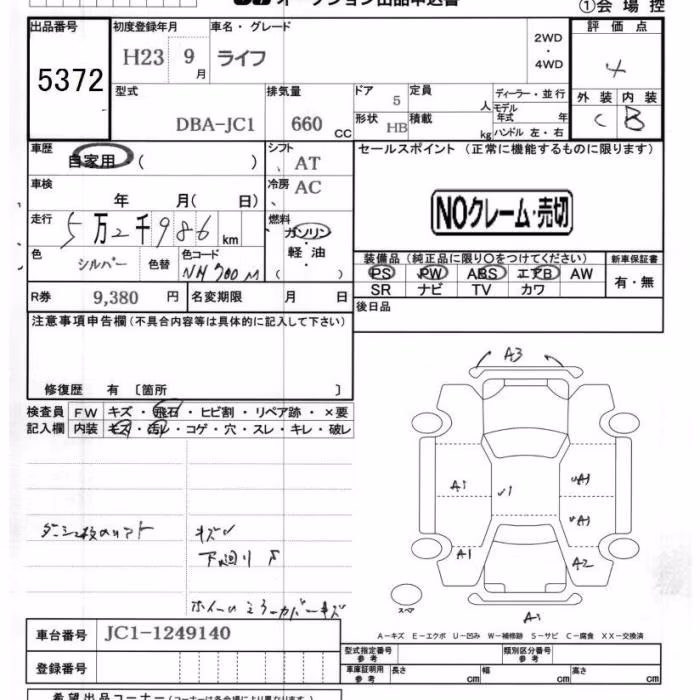 オークション出品申込書
①会場控
出品番号 初度登録年月 車名・グレード 評価点
5372 H23 9月 ライフ 2WD ・ 4WD 4
型式 排気量 ドア 定員 ディーラー・並行 外装 内装
DBA-JC1 660 CC 5 人 モデル年式 年 C B
形状 HB 積載 kg ハンドル 左・右
車歴 自家用 ( ) シフト AT セールスポイント (正常に機能するものに限ります)
車検 年 月( 日) 冷房 AC
NOクレーム・売切
走行 5万2千986 km 燃料 ガソリン・軽油 ( )
色 シルバー 色替 色コード NH700M
装備品 (純正品に限り○をつけてください) 新車保証書
PS PW ABS エアB AW 有・無
SR ナビ TV カワ
R券 9,380 円 名変期限 月 日 後日品
注意事項申告欄 (不具合内容等は具体的に記入して下さい)
修復歴 有 〔箇所 〕
検査員 FW キズ・飛石・ヒビ割・リペア跡・×要
記入欄 内装 キズ・汚レ・コゲ・穴・スレ・キレ・破レ
キズ
下廻り サ
A3
A1
√1
A1
A1
A1
A2
A1
スペア
A-キズ E-エクボ U-凹み W-補修跡 S-サビ C-腐食 XX-交換済
車台番号 JC1-1249140
登録番号
型式指定番号 参考 類別区分番号 参考
車庫証明用 参考 長さ cm 幅 cm 高さ cm
希望出品コーナー (コーナーは各会場により異なります)